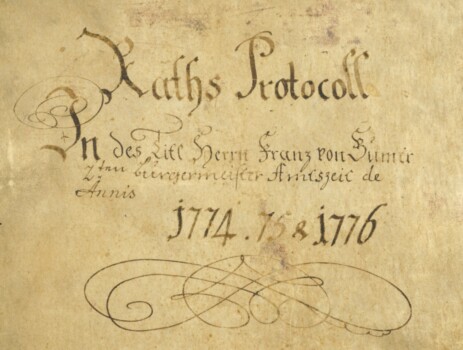 Raths Protocoll
In des Titl Herrn Franz von
2ten burgermeister Amtszeit de
Annis
1774. 75 & 1776